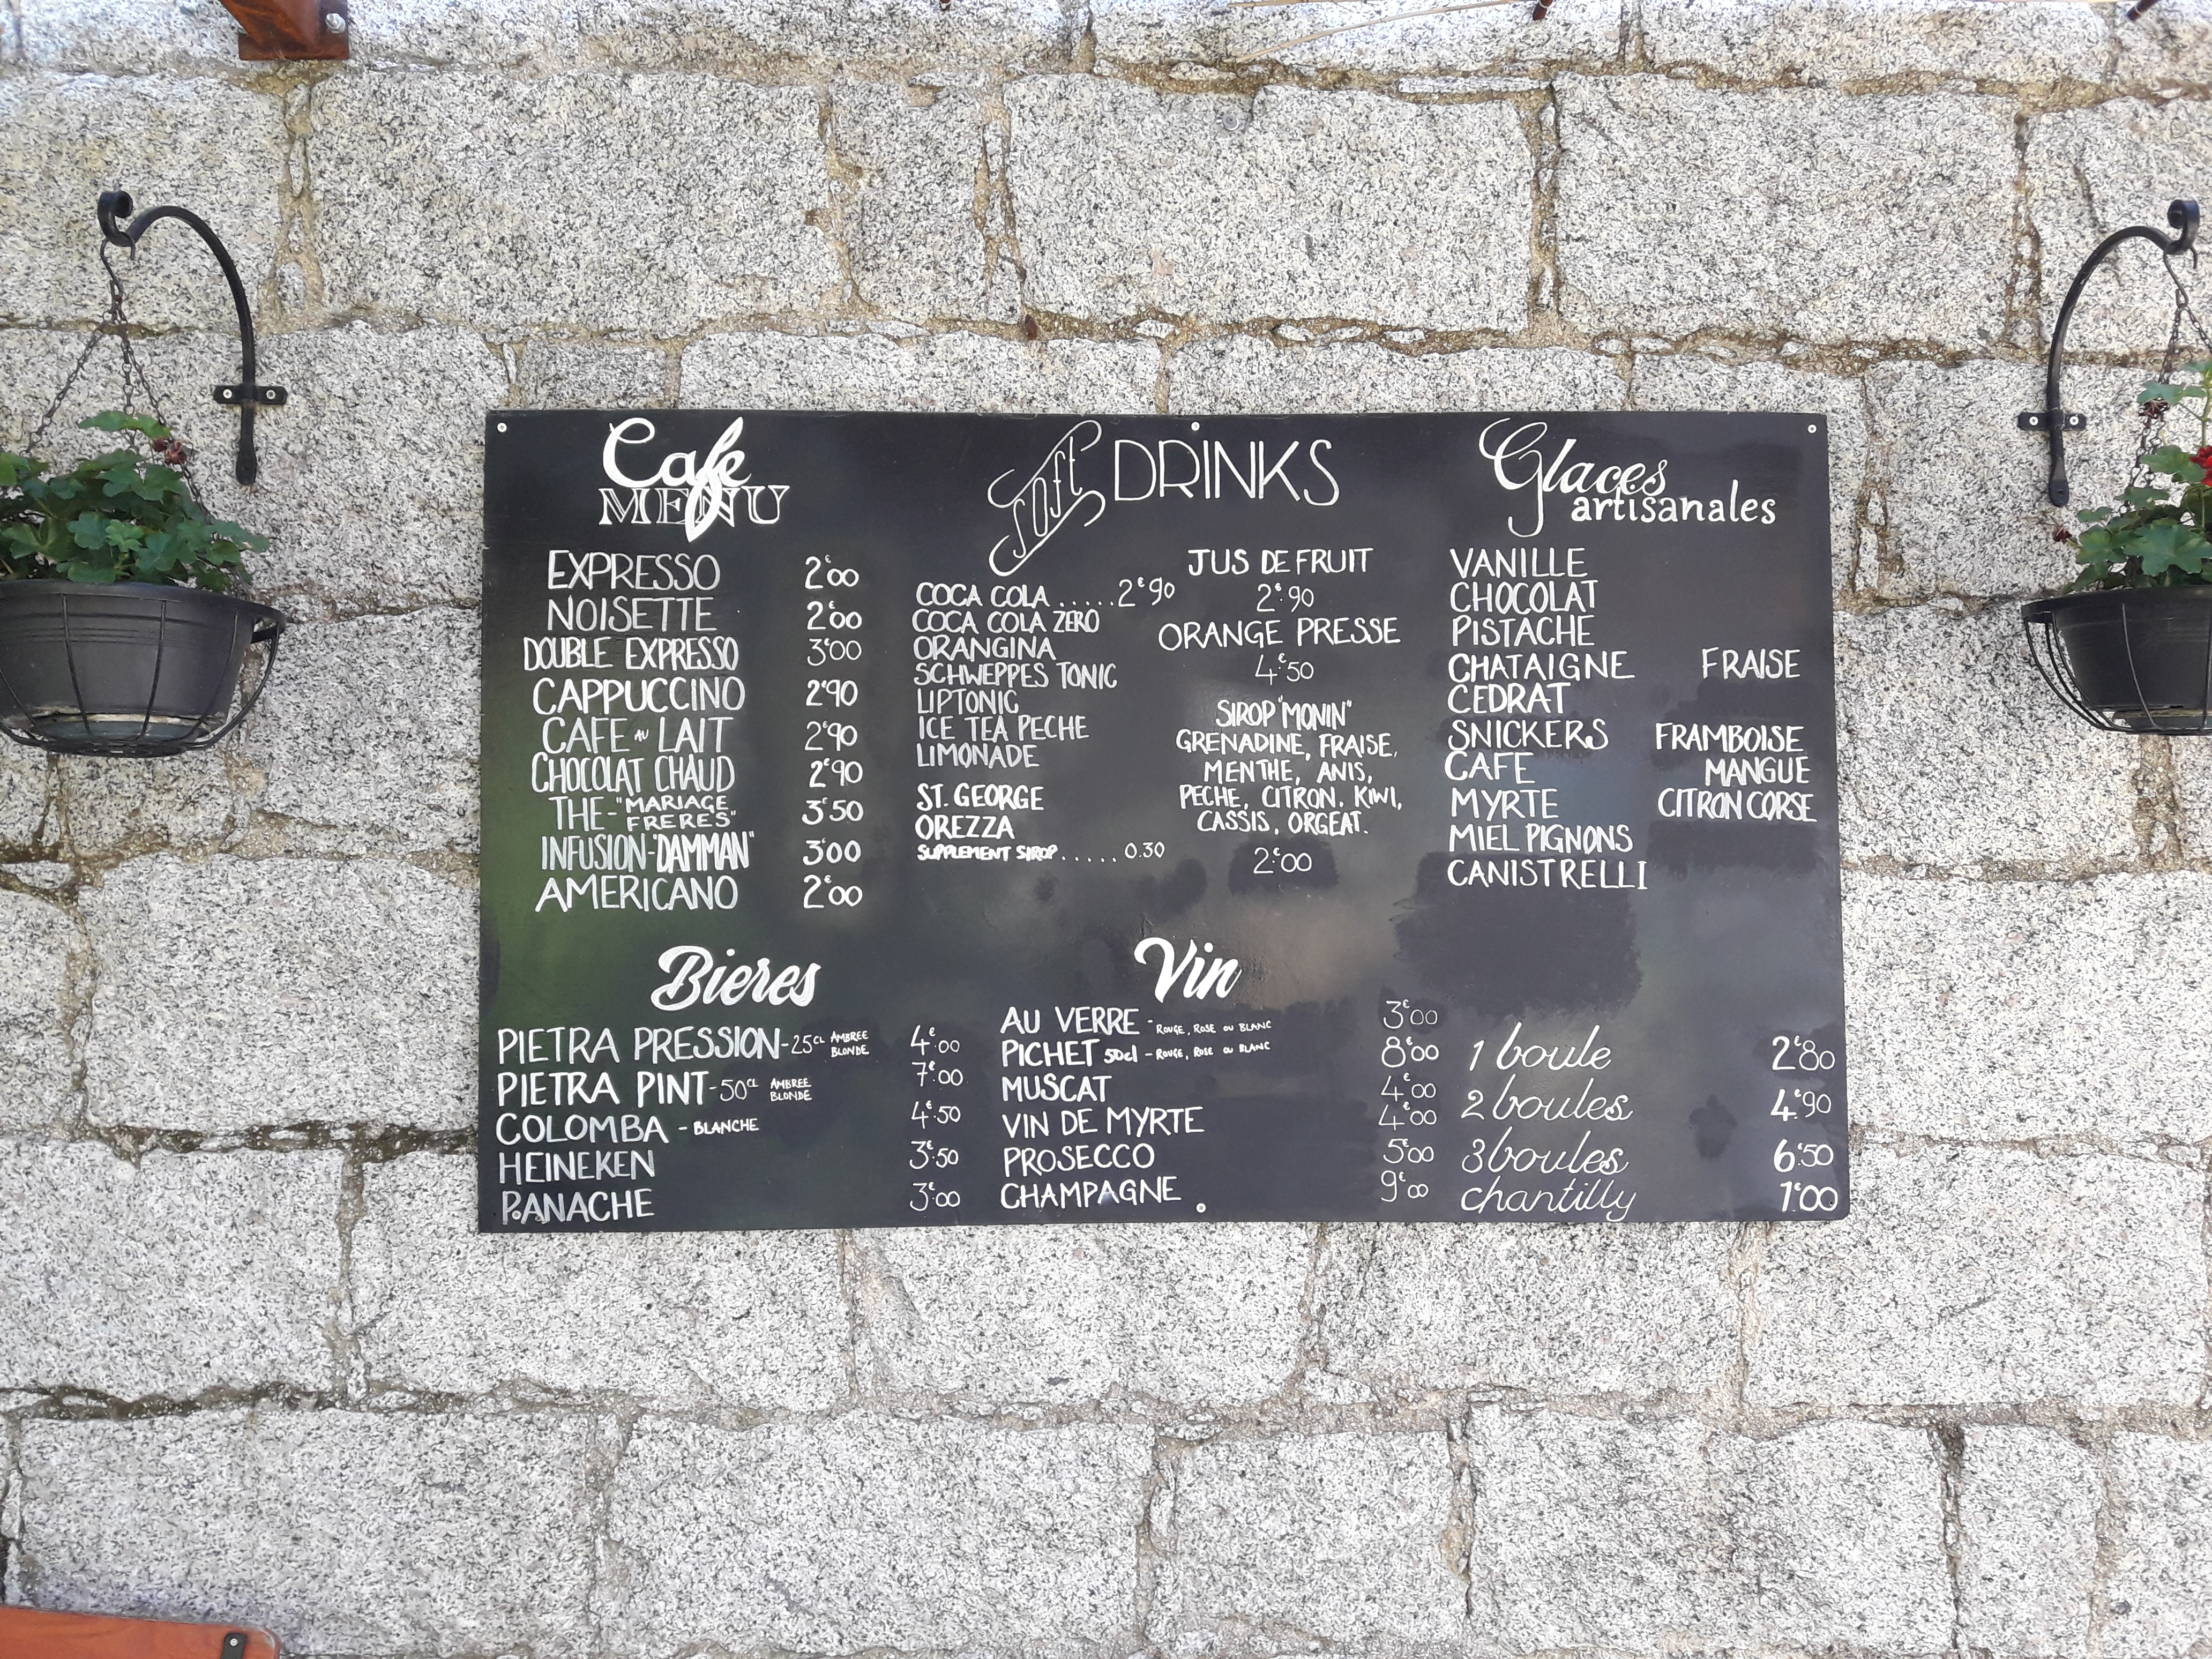 Cafe
MENU
EXPRESSO 2€00
NOISETTE 2€00
DOUBLE EXPRESSO 3€00
CAPPUCCINO 2€90
CAFE AU LAIT 2€90
CHOCOLAT CHAUD 2€90
THE-"MARIAGE FRERES" 3€50
INFUSION-"DAMMAN" 3€00
AMERICANO 2€00
Soft DRINKS
COCA COLA.....2€90
COCA COLA ZERO
ORANGINA
SCHWEPPES TONIC
LIPTONIC
ICE TEA PECHE
LIMONADE
ST. GEORGE
OREZZA
SUPPLEMENT SIROP.....0.30
JUS DE FRUIT
2€.90
ORANGE PRESSE
4€.50
SIROP "MONIN"
GRENADINE, FRAISE,
MENTHE, ANIS,
PECHE, CITRON. KIWI,
CASSIS, ORGEAT.
2€.00
Glaces
artisanales
VANILLE
CHOCOLAT
PISTACHE
CHATAIGNE FRAISE
CEDRAT
SNICKERS FRAMBOISE
CAFE MANGUE
MYRTE CITRON CORSE
MIEL PIGNONS
CANISTRELLI
Bieres
PIETRA PRESSION-25CL AMBREE BLONDE 4€.00
PIETRA PINT-50CL AMBREE BLONDE 7€.00
COLOMBA - BLANCHE 4€.50
HEINEKEN 3€.50
PANACHE 3€.00
Vin
AU VERRE - ROUGE, ROSE OU BLANC 3€00
PICHET 50cl - ROUGE, ROSE OU BLANC 8€00
MUSCAT 4€00
VIN DE MYRTE 4€00
PROSECCO 5€00
CHAMPAGNE 9€00
1 boule 2€80
2 boules 4€90
3 boules 6€50
chantilly 1€00